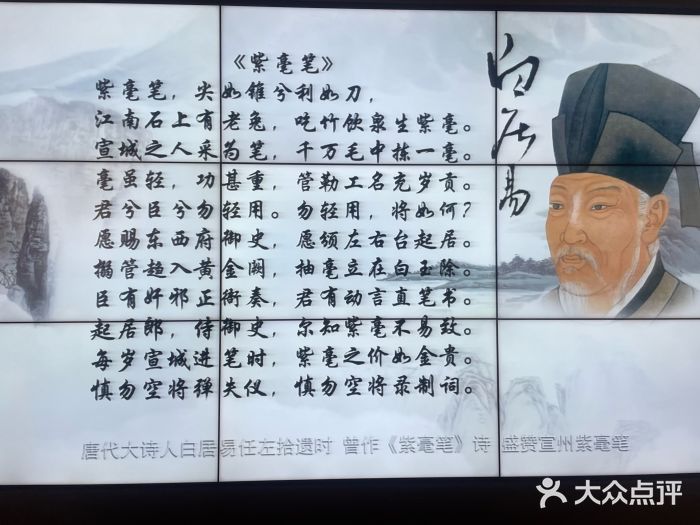 《紫毫笔》
紫毫笔，尖如锥兮利如刀，
江南石上有老兔，吃竹饮泉生紫毫。
宣城之人采为笔，千万毛中拣一毫。
毫虽轻，功甚重，管勒工名充岁贡。
君兮臣兮勿轻用。勿轻用，将如何？
愿赐东西府御史，愿颁左右台起居。
搦管趋入黄金阙，抽毫立在白玉除。
臣有奸邪正衙奏，君有动言直笔书。
起居郎，侍御史，尔知紫毫不易致。
每岁宣城进笔时，紫毫之价如金贵。
慎勿空将弹失仪，慎勿空将录制词。
白居易
唐代大诗人白居易任左拾遗时 曾作《紫毫笔》诗 盛赞宣州紫毫笔
大众点评